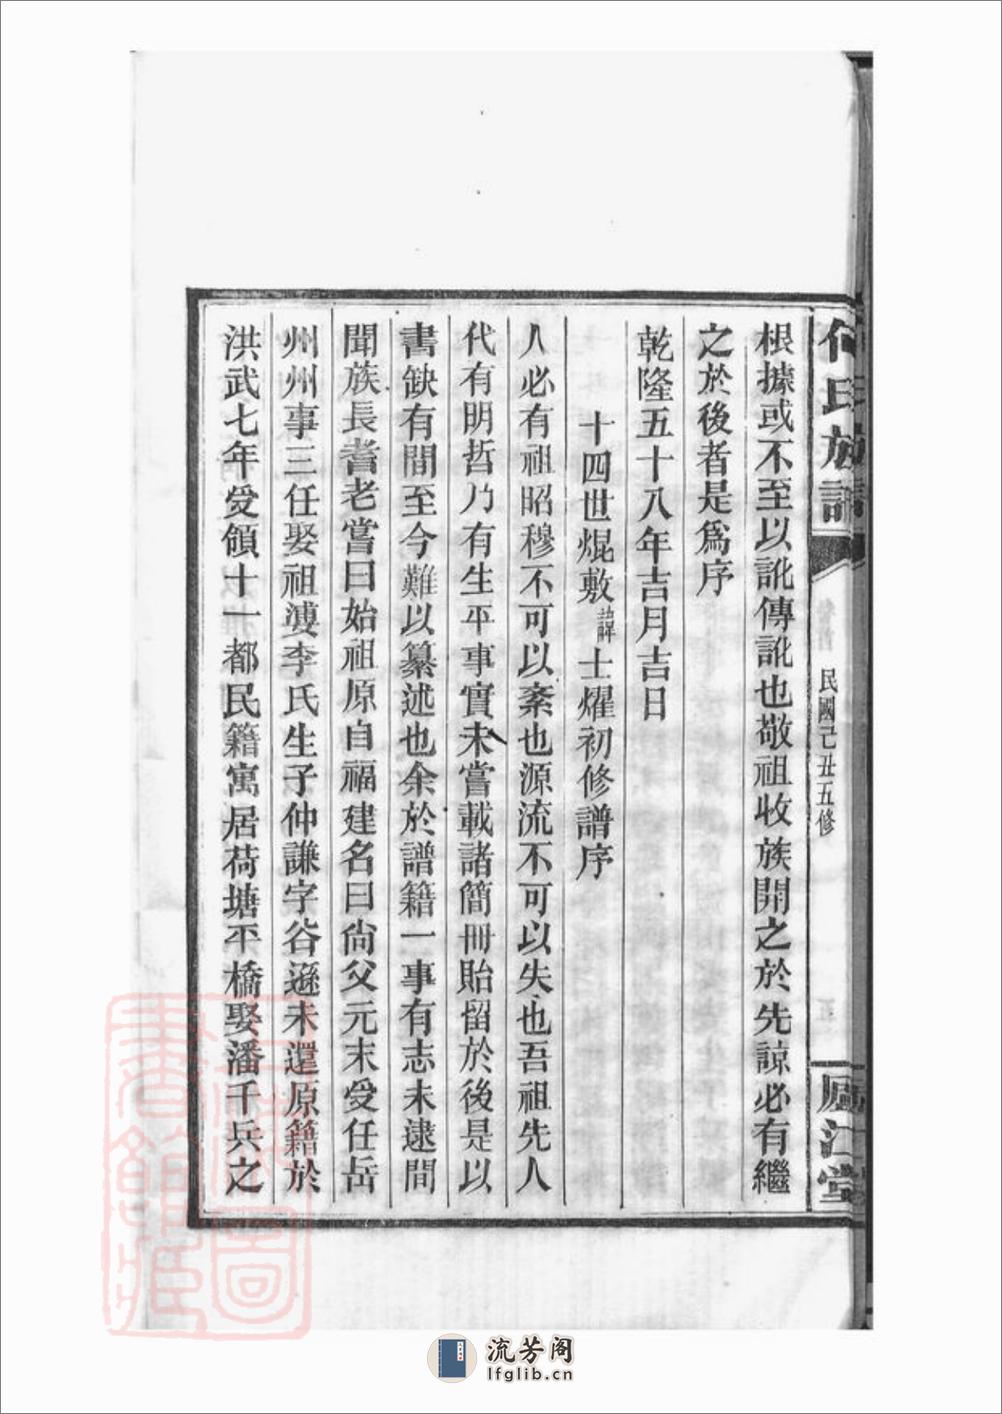 何氏族譜
民國己丑五修
廬江堂
根據或不至以訛傳訛也敬祖收族開之於先諒必有繼
之於後者是爲序
乾隆五十八年吉月吉日
十四世焜敷諱士燿初修譜序
人必有祖昭穆不可以紊也源流不可以失也吾祖先人
代有明哲乃有生平事實未嘗載諸簡冊貽留於後是以
書缺有間至今難以纂述也余於譜籍一事有志未逮間
聞族長耆老嘗曰始祖原自福建名曰尙父元末受任岳
州州事三任娶祖婆李氏生子仲謙字谷遜未還原籍於
洪武七年受領十一都民籍寓居荷塘平橋娶潘千兵之
流芳阁
lfglib.cn